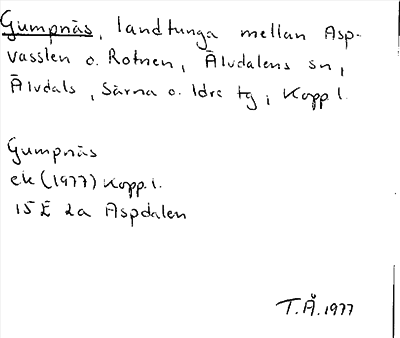 Gumpnäs, landtunga mellan Asp-
vasslen o. Rotnen, Älvdalens sn,
Älvdals, Särna o. Idre tg, Kopp. l.
Gumpnäs
ek (1977) Kopp. l.
15E 2a Aspdalen
T.Å. 1977